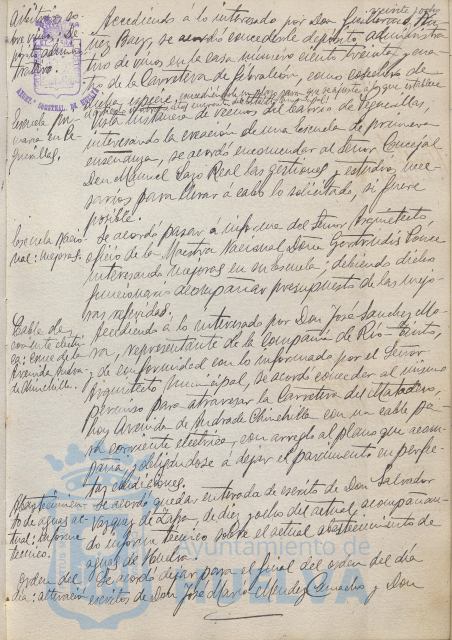 veinte y ocho
Accediendo á lo interesado por Don Guillermo
Báez, se acordó concederle depósito administra-
tivo de vinos en la casa número ciento treinta y cua-
tro de la Carretera de Gibraleón, como
Vista instancia de vecinos del barrio de Peguerillas,
interesando la creación de una Escuela de primera
enseñanza, se acordó encomendar al Señor Concejal
Don Manuel Lazo Real las gestiones y estudios nece-
sarios para llevar á cabo lo solicitado, si fuere
posible.
Escuela pri-
maria en Pe-
guerillas.
Se acordó pasar á informe del Señor Arquitecto,
oficio de la Maestra Nacional Doña Gertrudis Ponce
interesando mejoras en su Escuela; debiendo dicho
funcionario acompañar presupuesto de las mejo-
ras referidas.
Escuela Nacio-
nal: mejoras.
Accediendo á lo interesado por Don José Sanchez Mo-
ra, representante de la Compañía de Rio-Tinto,
y de conformidad con lo informado por el Señor
Arquitecto Municipal, se acordó conceder al mismo
permiso para atravesar la Carretera del Matadero,
hoy Avenida de Andrade Chinchilla con un cable pa-
ra corriente electrica, con arreglo al plano que acom-
paña, y obligándose á dejar el pavimento en perfec-
tas condiciones.
Cable de
corriente eléctri-
ca: cruce de la
Avenida Andra-
de Chinchilla.
Se acordó quedar enterada de escrito de Don Salvador
Vazquez de Zafra, de diez y ocho del actual, acompañan-
do informe técnico sobre el actual abastecimiento de
aguas de Huelva.
Abastecimien-
to de aguas ac-
tual: informe
técnico.
Se acordó dejar para el final del orden del día
escritos de Don José María Mendez Camacho y Don
Orden del
día: alteración
Ayuntamiento de
HUELVA